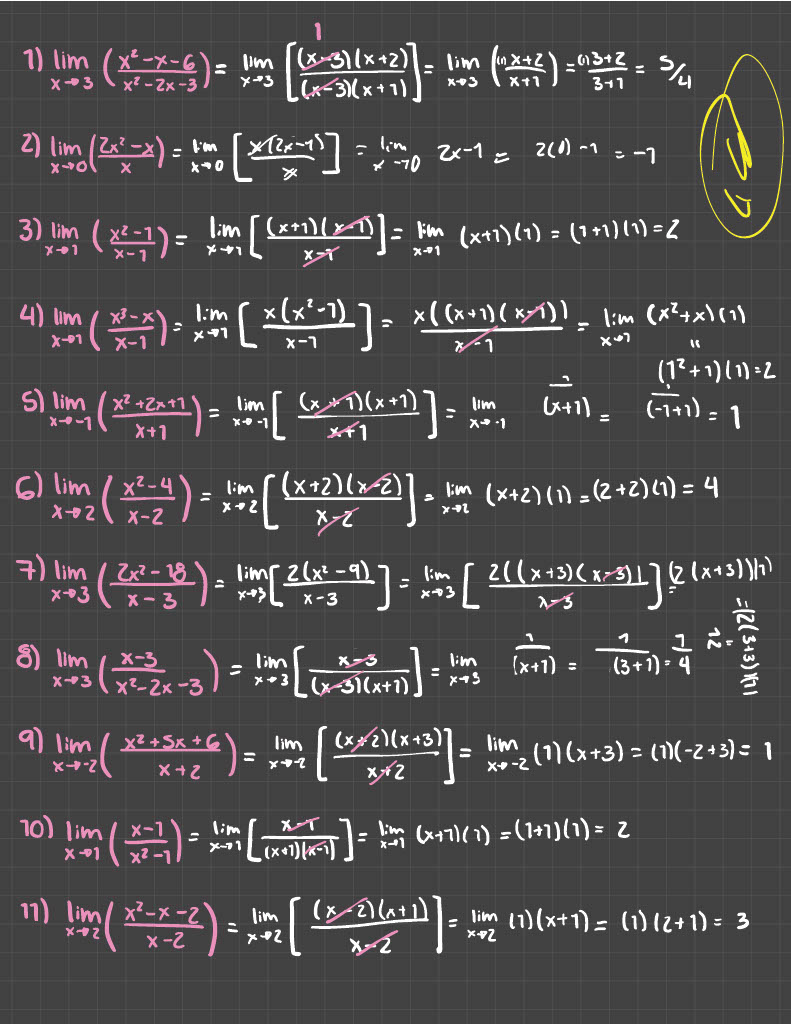 1) lim x→3 (x²-x-6 / x²-2x-3) = lim x→3 [(x-3)(x+2) / (x-3)(x+1)] 1 = lim x→3 ((1) x+2 / x+1) = (1) 3+2 / 3+1 = 5/4
2) lim x→0 (2x²-x / x) = lim x→0 [x(2x-1) / x] = lim x→0 2x-1 = 2(0)-1 = -1
3) lim x→1 (x²-1 / x-1) = lim x→1 [(x+1)(x-1) / x-1] = lim x→1 (x+1)(1) = (1+1)(1) = 2
4) lim x→1 (x³-x / x-1) = lim x→1 [x(x²-1) / x-1] = x((x+1)(x-1)) / x-1 = lim x→1 (x²+x)(1)
" (1²+1)(1)=2
5) lim x→-1 (x²+2x+1 / x+1) = lim x→-1 [(x+1)(x+1) / x+1] = lim x→-1 1 / (x+1) = 1 / (-1+1) = 1
6) lim x→2 (x²-4 / x-2) = lim x→2 [(x+2)(x-2) / x-2] = lim x→2 (x+2)(1) = (2+2)(1) = 4
7) lim x→3 (2x²-18 / x-3) = lim x→3 [2(x²-9) / x-3] = lim x→3 [2((x+3)(x-3)) / x-3] = (2(x+3))(1)
=(2(3+3))(1)
= 12
8) lim x→3 (x-3 / x²-2x-3) = lim x→3 [x-3 / (x-3)(x+1)] = lim x→3 1 / (x+1) = 1 / (3+1) = 1/4
9) lim x→-2 (x²+5x+6 / x+2) = lim x→-2 [(x+2)(x+3) / x+2] = lim x→-2 (1)(x+3) = (1)(-2+3) = 1
10) lim x→1 (x-1 / x²-1) = lim x→1 [x-1 / (x+1)(x-1)] = lim x→1 (x+1)(1) = (1+1)(1) = 2
11) lim x→2 (x²-x-2 / x-2) = lim x→2 [(x-2)(x+1) / x-2] = lim x→2 (1)(x+1) = (1)(2+1) = 3